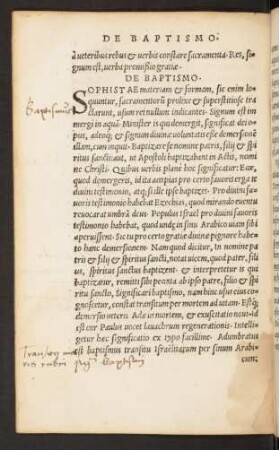 DE BAPTISMO
à ueteribus rebus & uerbis constare sacramenta. Res, si-
gnum est, uerba promissio gratiæ.
DE BAPTISMO.
SOPHISTAE materiam & formam, sic enim lo-
quuntur, sacramentorũ prolixe & superstitiose tra
ctarunt, usum rei nullum indicantes. Signum est im
mergi in aquã. Minister is qui demergit, significat diui
opus, adeoq; & signum diuinæ uoluntatis esse demersionẽ
illam, cum inquit. Baptizare se nomine patris, filij &
spiritus sancti aut, ut Apostoli baptizabant in Actis, nomi
ne Christi. Quibus uerbis planè hoc significatur: Ear,
quod demergeris, id ita accipias pro certo fauoris erga te
diuini testimonio, atq; si dñs ipse baptizet. Pro diuini fa-
uoris testimonio habebat Ezechias, quod mirandi euentu
reuocarat umbrã deus. Populus Israel pro diuini fauoris
testimonio habebat, quod undæ in sinu Arabico uiam sibi
aperuissent. Sic tu pro certo gratiæ diuinæ pignore habe-
to hanc demersionem. Nam quod dicitur, in nomine pa
tris & filij & spiritus sancti, notat uicem, quod pater, fili
us, spiritus sanctus baptizent. & interpretetur is qui
baptizatur, remitti sibi peccata ab ipso patre, filio &
spiritu sancto. Significari baptismo, nam huic usui eius co-
gnoscetur, constat transitum per mortem ad uitam. Estq;
demersio ueteris Adæ in mortem, & exuscitatio noui id
est cur Paulus uocet lauachrum regenerationis. Intelli-
getur hæc significatio ex typo facillime. Adumbratus
est baptismus transitu Israëlitarum per sinum Arabi
cum:
Baptismus
Transitus ma
ris rubri fig. Baptism